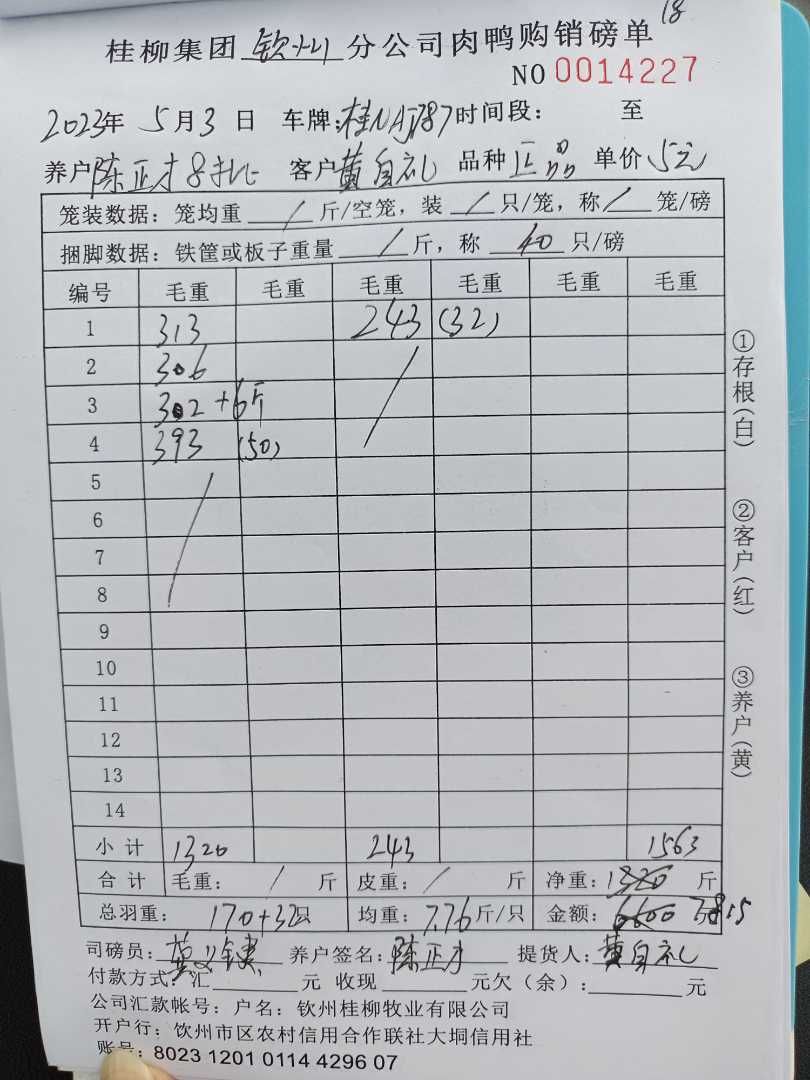 18
桂柳集团 钦州 分公司肉鸭购销磅单
NO 0014227
2023年 5月3日 车牌:桂NAJ787 时间段: 至
养户陈正才8批 客户黄自礼 品种 正品 单价 5元
笼装数据: 笼均重 / 斤/空笼, 装 / 只/笼, 称 / 笼/磅
捆脚数据: 铁筐或板子重量 / 斤, 称 40 只/磅
编号 毛重 毛重 毛重 毛重 毛重 毛重
1 313 243 (32)
2 306
3 302+6斤
4 393 (50)
5
6
7
8
9
10
11
12
13
14
小计 1320 243 1563
合计 毛重: / 斤 皮重: / 斤 净重: 1320 斤
总羽重: 170+32只 均重: 7.76斤/只 金额: 6600 7815
司磅员: 养户签名: 陈正才 提货人: 黄自礼
付款方式: 汇 元 收现 元欠(余): 元
公司汇款帐号: 户名: 钦州桂柳牧业有限公司
开户行: 饮州市区农村信用合作联社大垌信用社
账号: 8023 1201 0114 4296 07
①存根(白)
②客户(红)
③养户(黄)